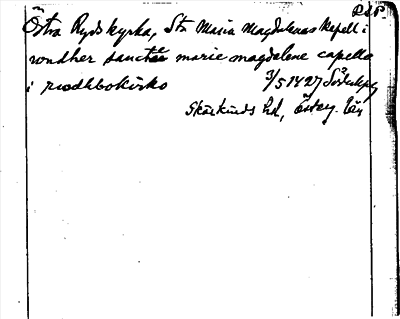 RAP.
Östra Ryds kyrka, Sta Maria Magdalenas kapell i
wndher sancte marie magdalene capelle
i riodhbokirko 3/5 1427 Söderkpg
Skärkinds hd, Österg. län